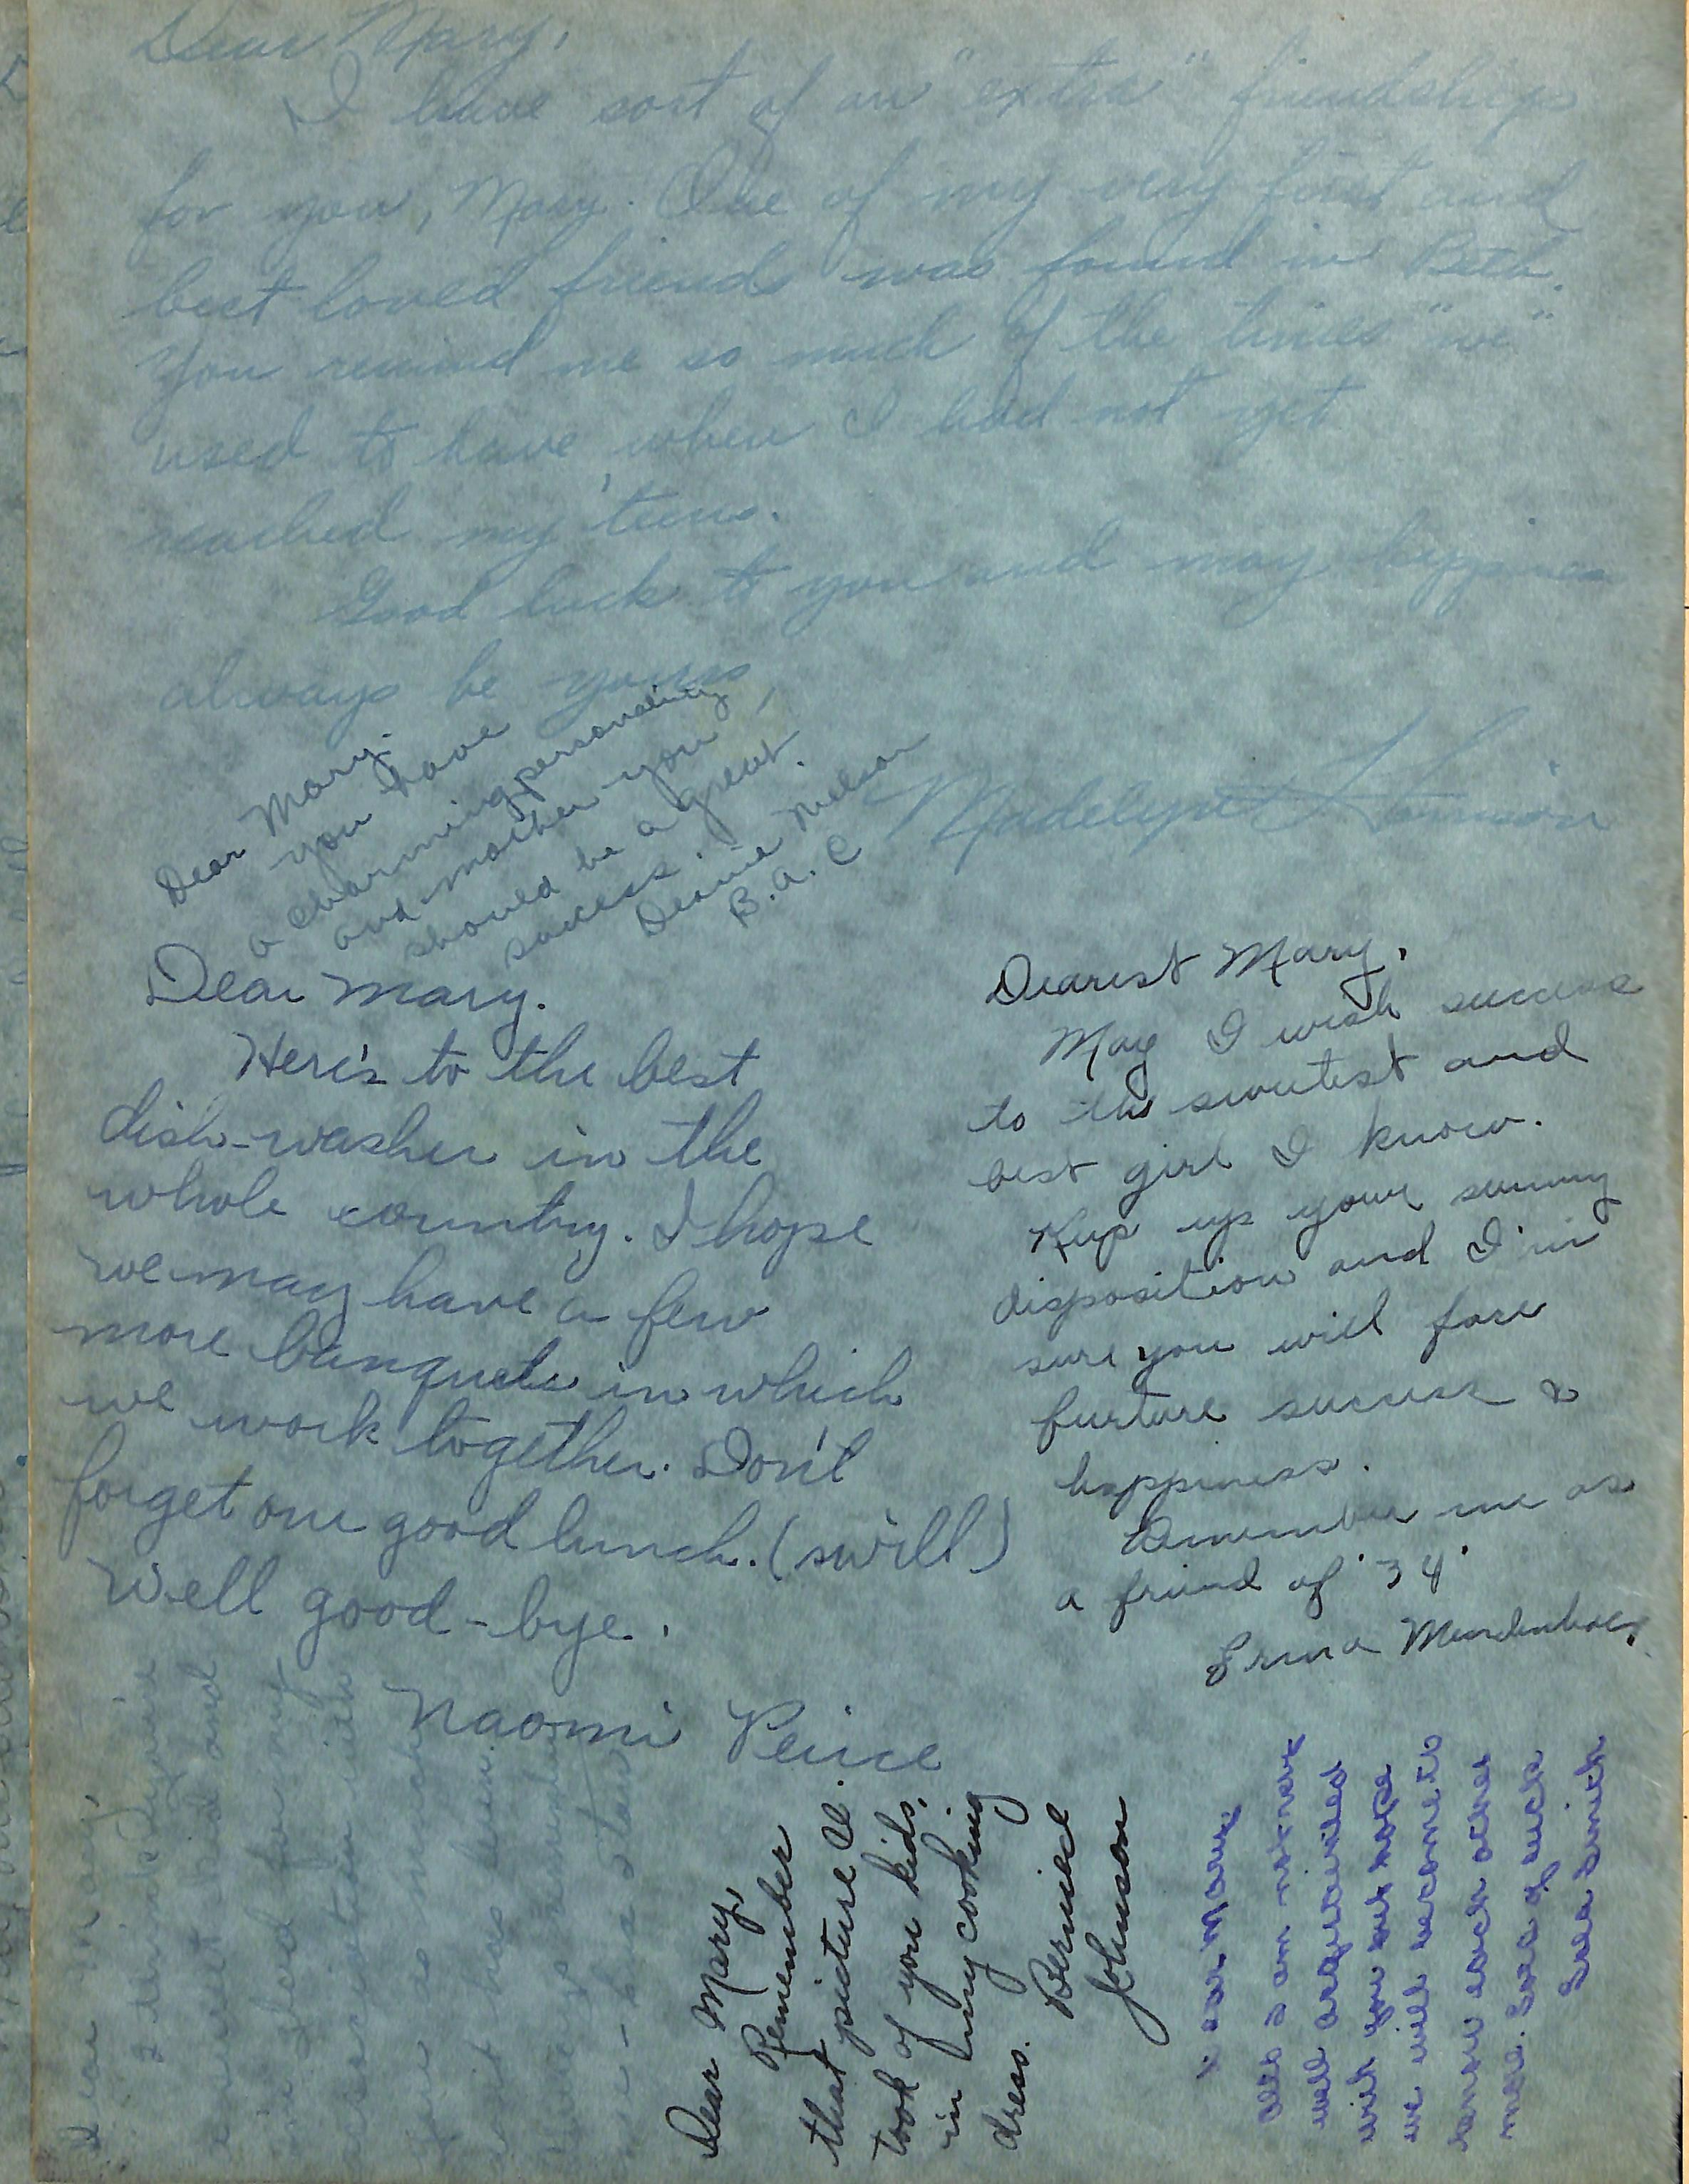 Dear Mary,
I have sort of an "extra" friendship
for you, Mary. One of my very first and
best loved friends was found in Beth.
You remind me so much of the times "we"
used to have, when I had not yet
reached my 'teens.
Good luck to you and may happiness
always be yours,
Madelyne
Dear Mary.
you have
a charming personality
and mother you
should be a great.
success.
Nelson
B.A.C
Dear Mary.
Here's to the best
dish-washer in the
whole country. I hope
we may have a few
more banquets in which
we work together. Don't
forget our good lunch. (swill)
Well good-bye.
Naomi Peirce
Dearest Mary,
May I wish success
to the sweetest and
best girl I know.
Keep up your sunny
disposition and I'm
sure you will face
furture success &
happiness.
Remember me as
a friend of '34'
Erma
Dear Mary,
I think you're
sweet and
I'm glad for my
association with
you
it has been.
Dear Mary,
Remember
that picture I
took of you kids,
in my cooking
dress.
Bernice
Johnson
Dear Mary,
Altho I am not very
well acquainted
with you but hope
we will become to
know each other
more. Lots of luck
Smith